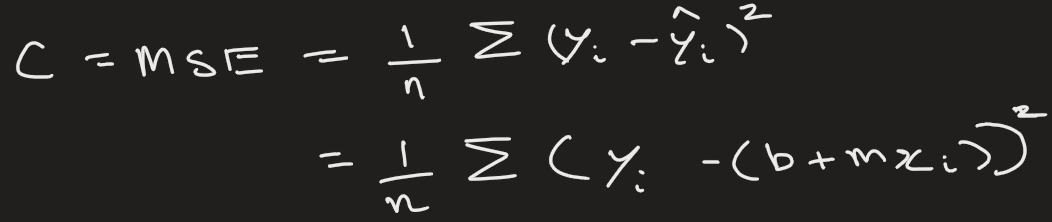 C = MSE = 1/n Σ (yᵢ - ŷᵢ)²
= 1/n Σ (yᵢ - (b + mxᵢ))²